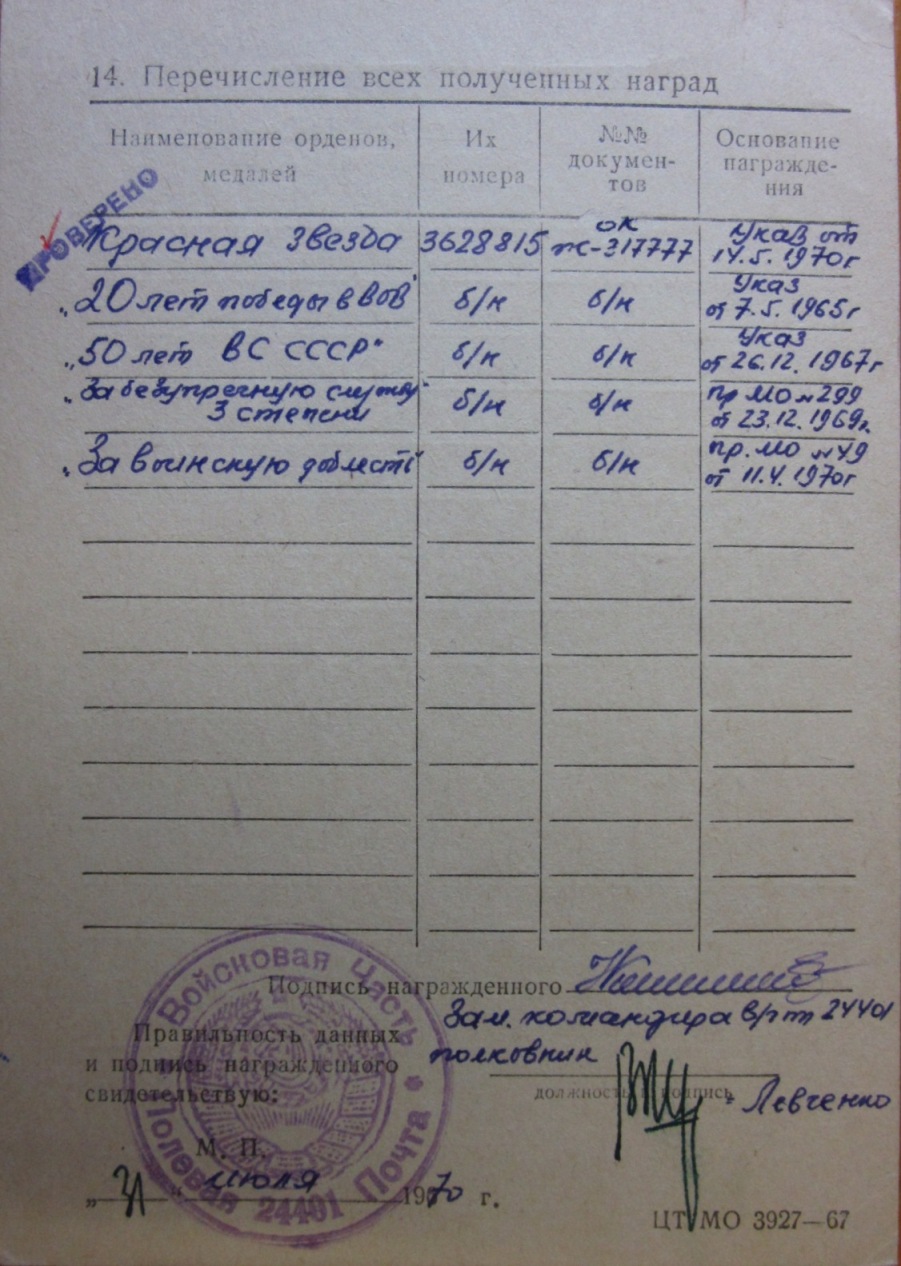 14. Перечисление всех полученных наград
Наименование орденов, медалей
Их номера
№№ докумен-тов
Основание награжде-ния
ПРОВЕРЕНО
Красная Звезда 3628815 ок ж-317777 Указ от 14.5.1970г
„20 лет победы в ВОВ" б/н б/н Указ от 7.5.1965г
„50 лет ВС СССР" б/н б/н Указ от 26.12.1967г
„За безупречную службу" 3 степени б/н б/н пр МО №299 от 23.12.1969г.
„За воинскую доблесть" б/н б/н пр. МО №49 от 11.4.1970г
Подпись награжденного
Зам. командира в/ч пп 24401
полковник
Правильность данных
и подпись награжденного
свидетельствую:
должность и подпись
- Левченко
М. П.
„31" июля 1970 г.
Войсковая Часть * Полевая Почта 24401 *
ЦТ МО 3927—67